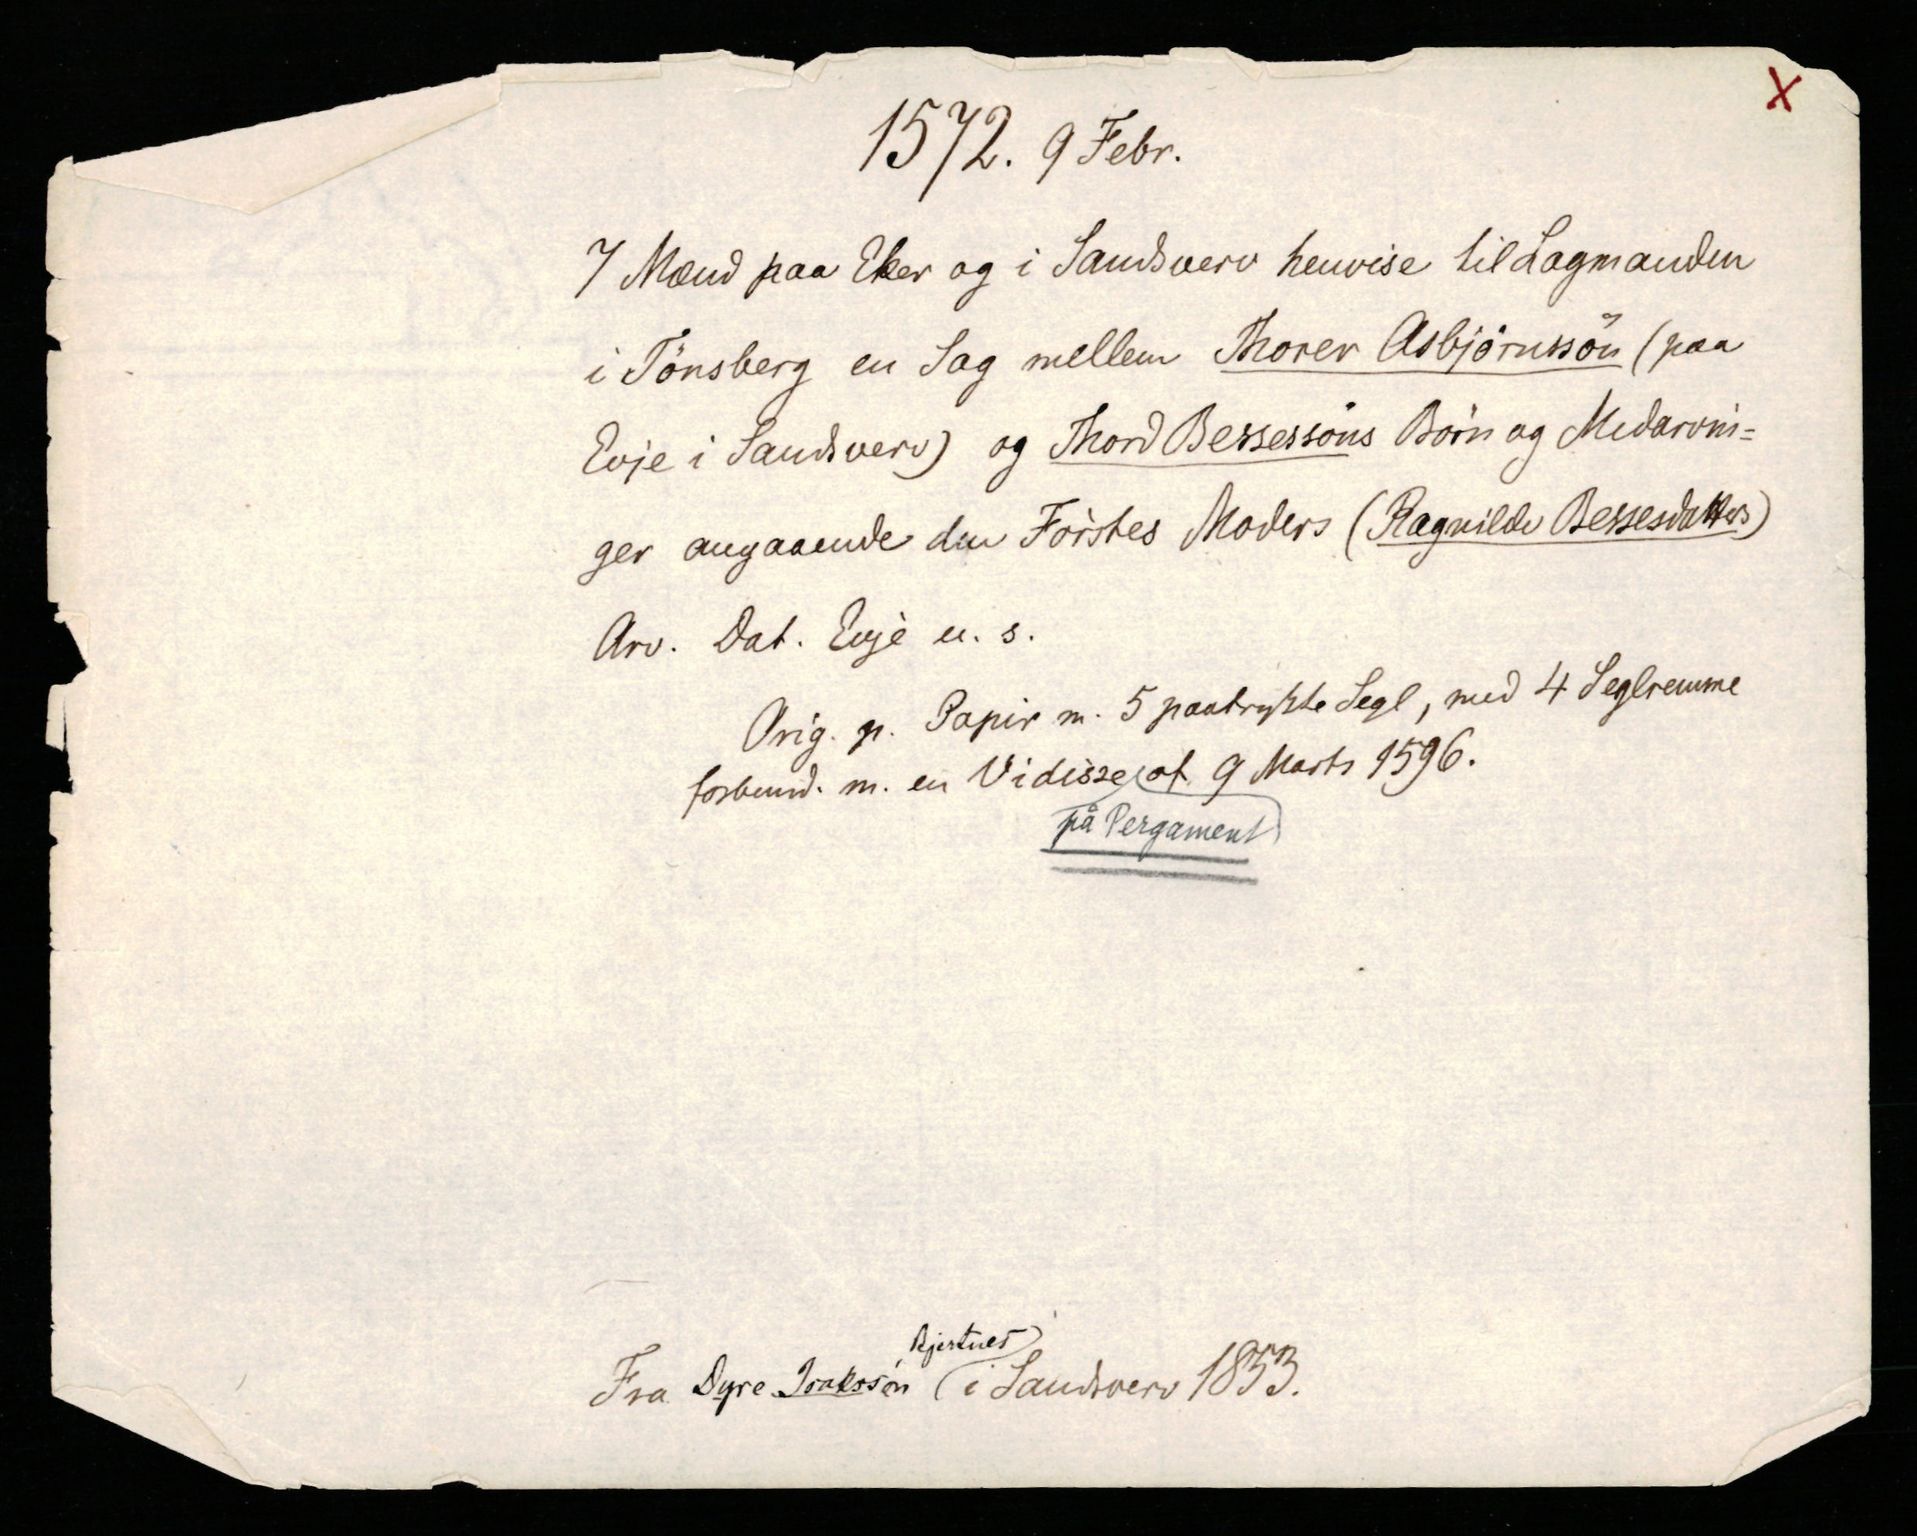 X
1572. 9 Febr.
7 Mænd paa Eker og i Sandsverv henvise til Lagmanden
i Tönsberg en Sag mellem Thorer Asbjörnssön (paa
Evje i Sandsverv) og Thord Bessessöns Börn og Medarvin=
ger angaaende den Förstes Moders (Ragnilde Bessesdatters)
Arv. Dat. Evje u. s.
Orig. p. Papir m. 5 paatrykte Segl, med 4 Seglremme
forbund. m. en Vidisse af 9 Marts 1596.
på Pergament
Bjertnes
Fra Dyre Isakssön i Sandsverv 1853.